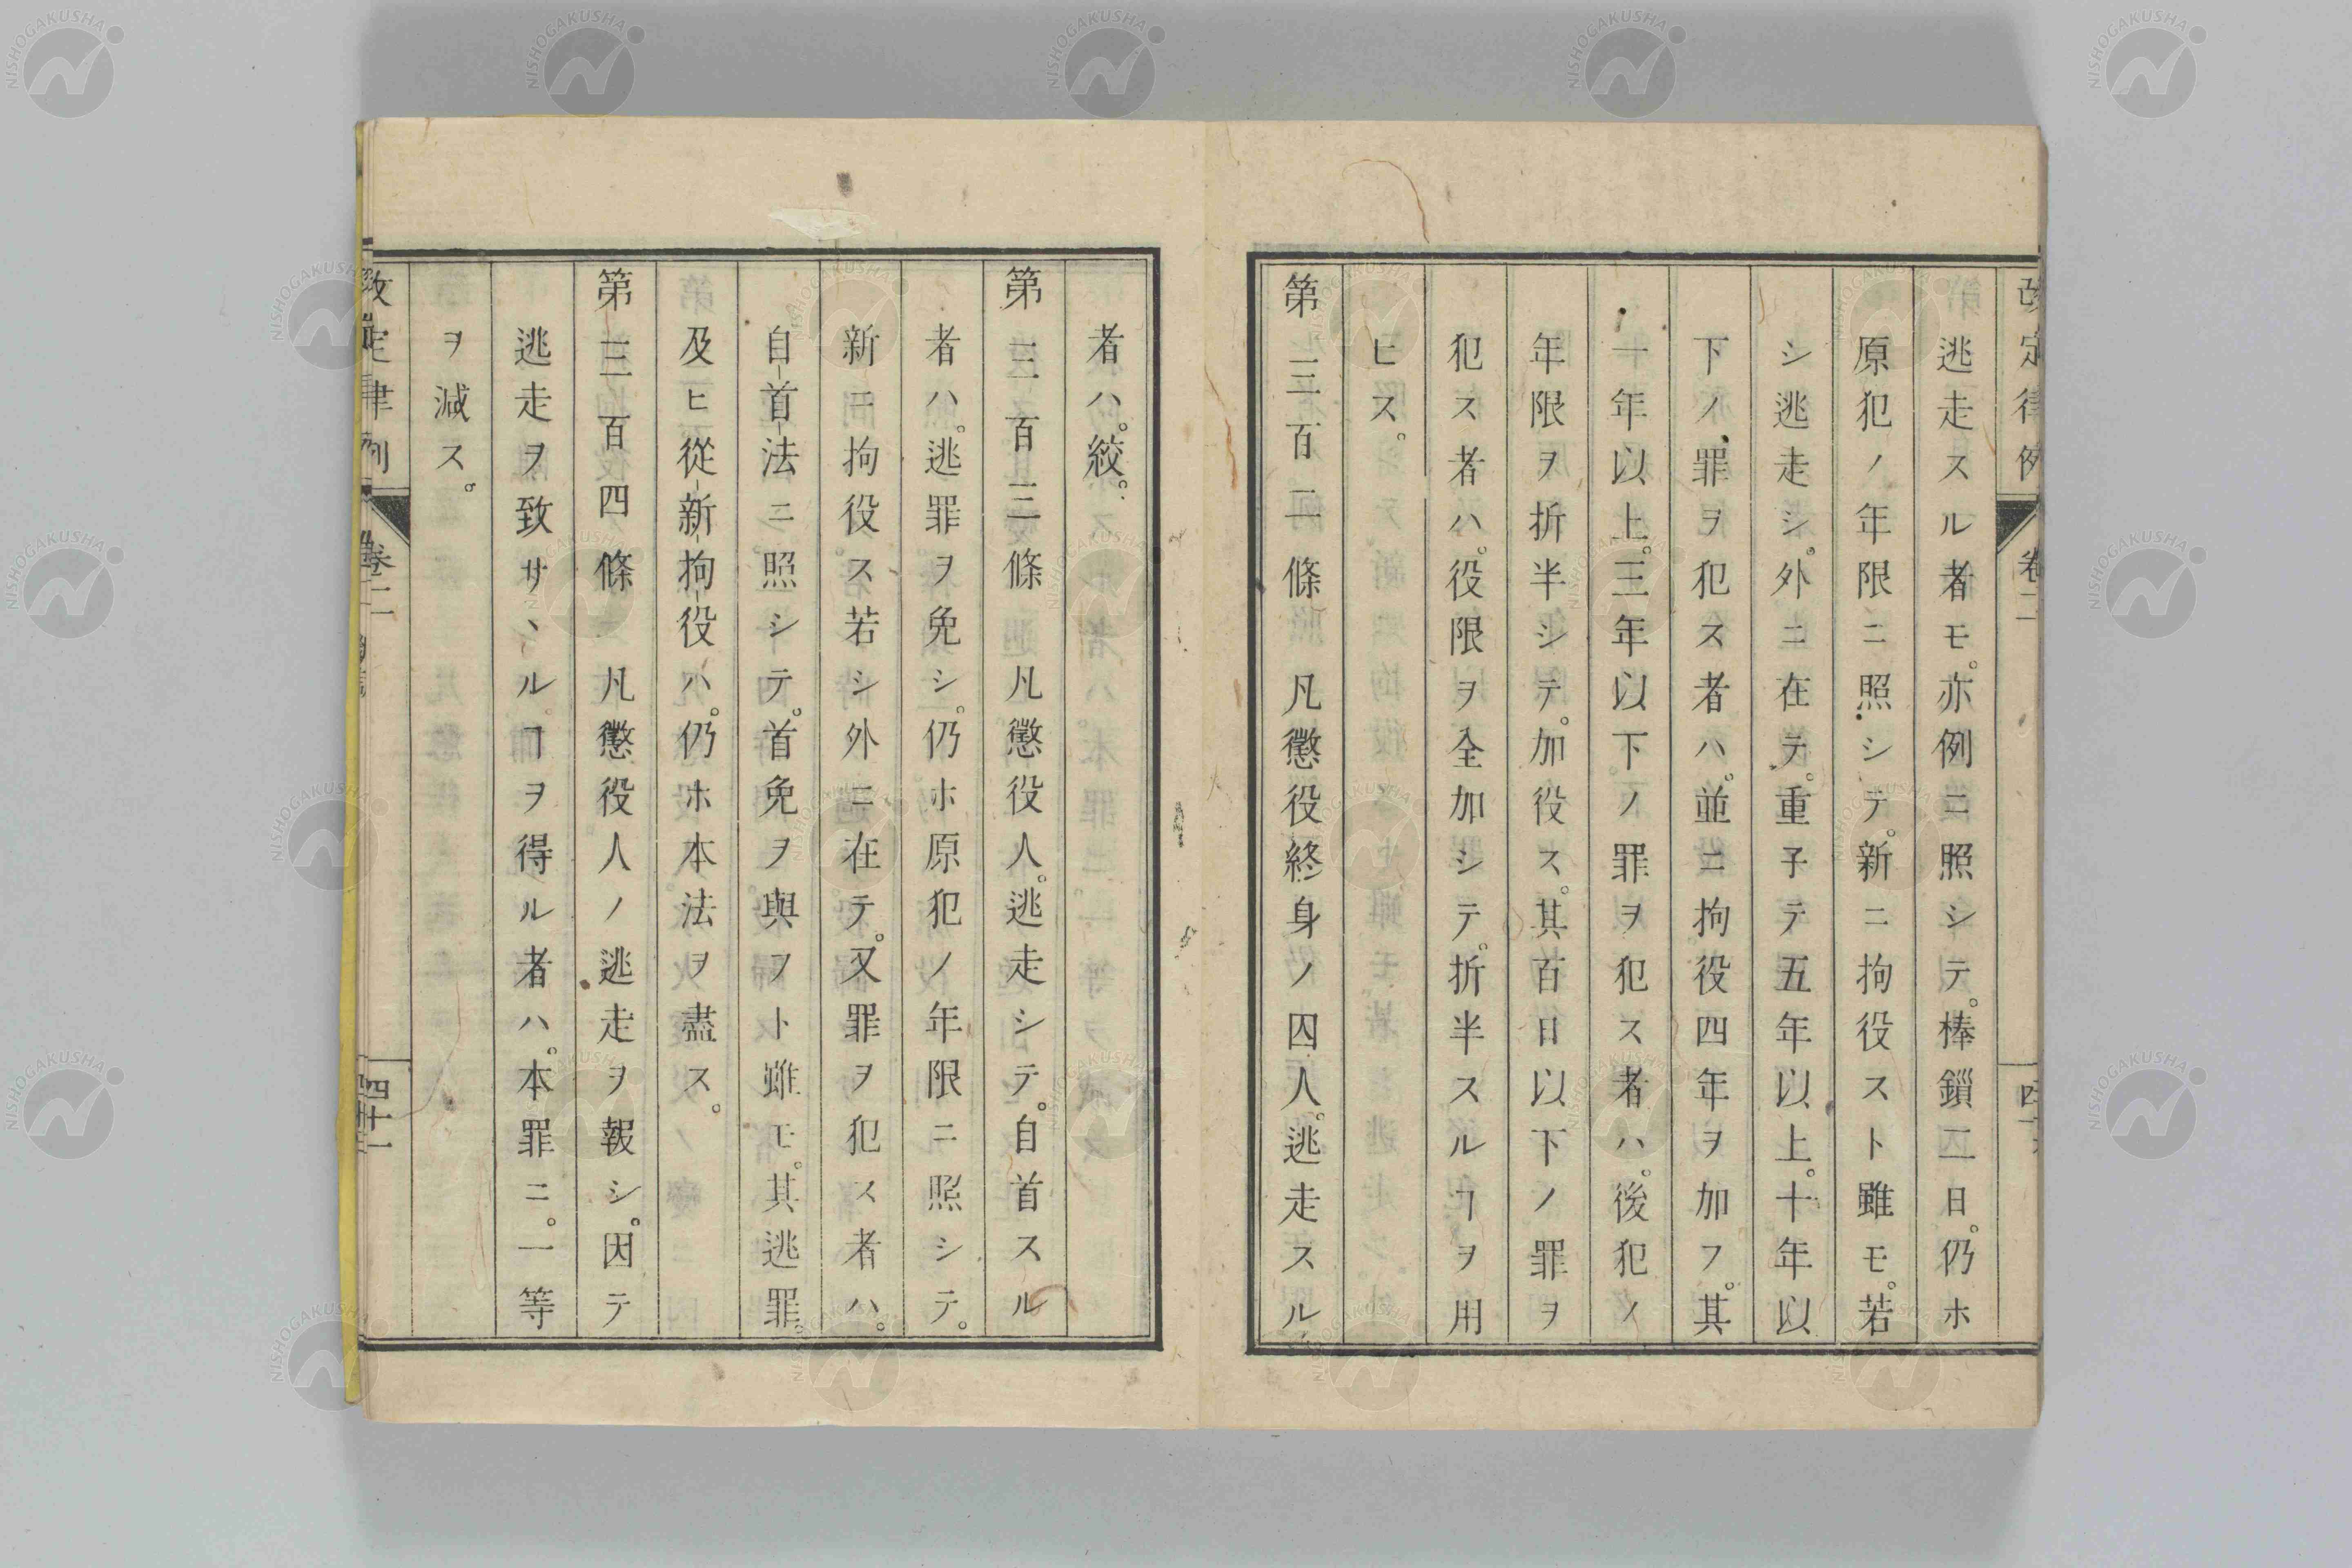 改定律例 卷二
逃走スル者モ。亦例ニ照シテ。棒鎖二日。仍ホ
原犯ノ年限ニ照シテ。新ニ拘役スト雖モ。若
シ逃走シ。外ニ在テ。重子テ五年以上。十年以
下ノ罪ヲ犯ス者ハ。並ニ拘役四年ヲ加フ。其
一年以上。三年以下ノ罪ヲ犯ス者ハ。後犯ノ
年限ヲ折半シテ。加役ス。其百日以下ノ罪ヲ
犯ス者ハ。役限ヲ全加シテ。折半スルヿヲ用
ヒス。
第三百二條 凡懲役終身ノ囚人。逃走スル
者ハ。絞。
第三百三條 凡懲役人。逃走シテ。自首スル
者ハ。逃罪ヲ免シ。仍ホ原犯ノ年限ニ照シテ。
新ニ拘役ス若シ外ニ在テ。又罪ヲ犯ス者ハ。
自首法ニ照シテ。首免ヲ與フト雖モ。其逃罪。
及ヒ從新拘役ハ。仍ホ本法ヲ盡ス。
第三百四條 凡懲役人ノ逃走ヲ報シ。因テ
逃走ヲ致サヽルヿヲ得ル者ハ。本罪ニ。一等
ヲ減ス。
改定律例 卷二 四十一
NISHOGAKUSHA